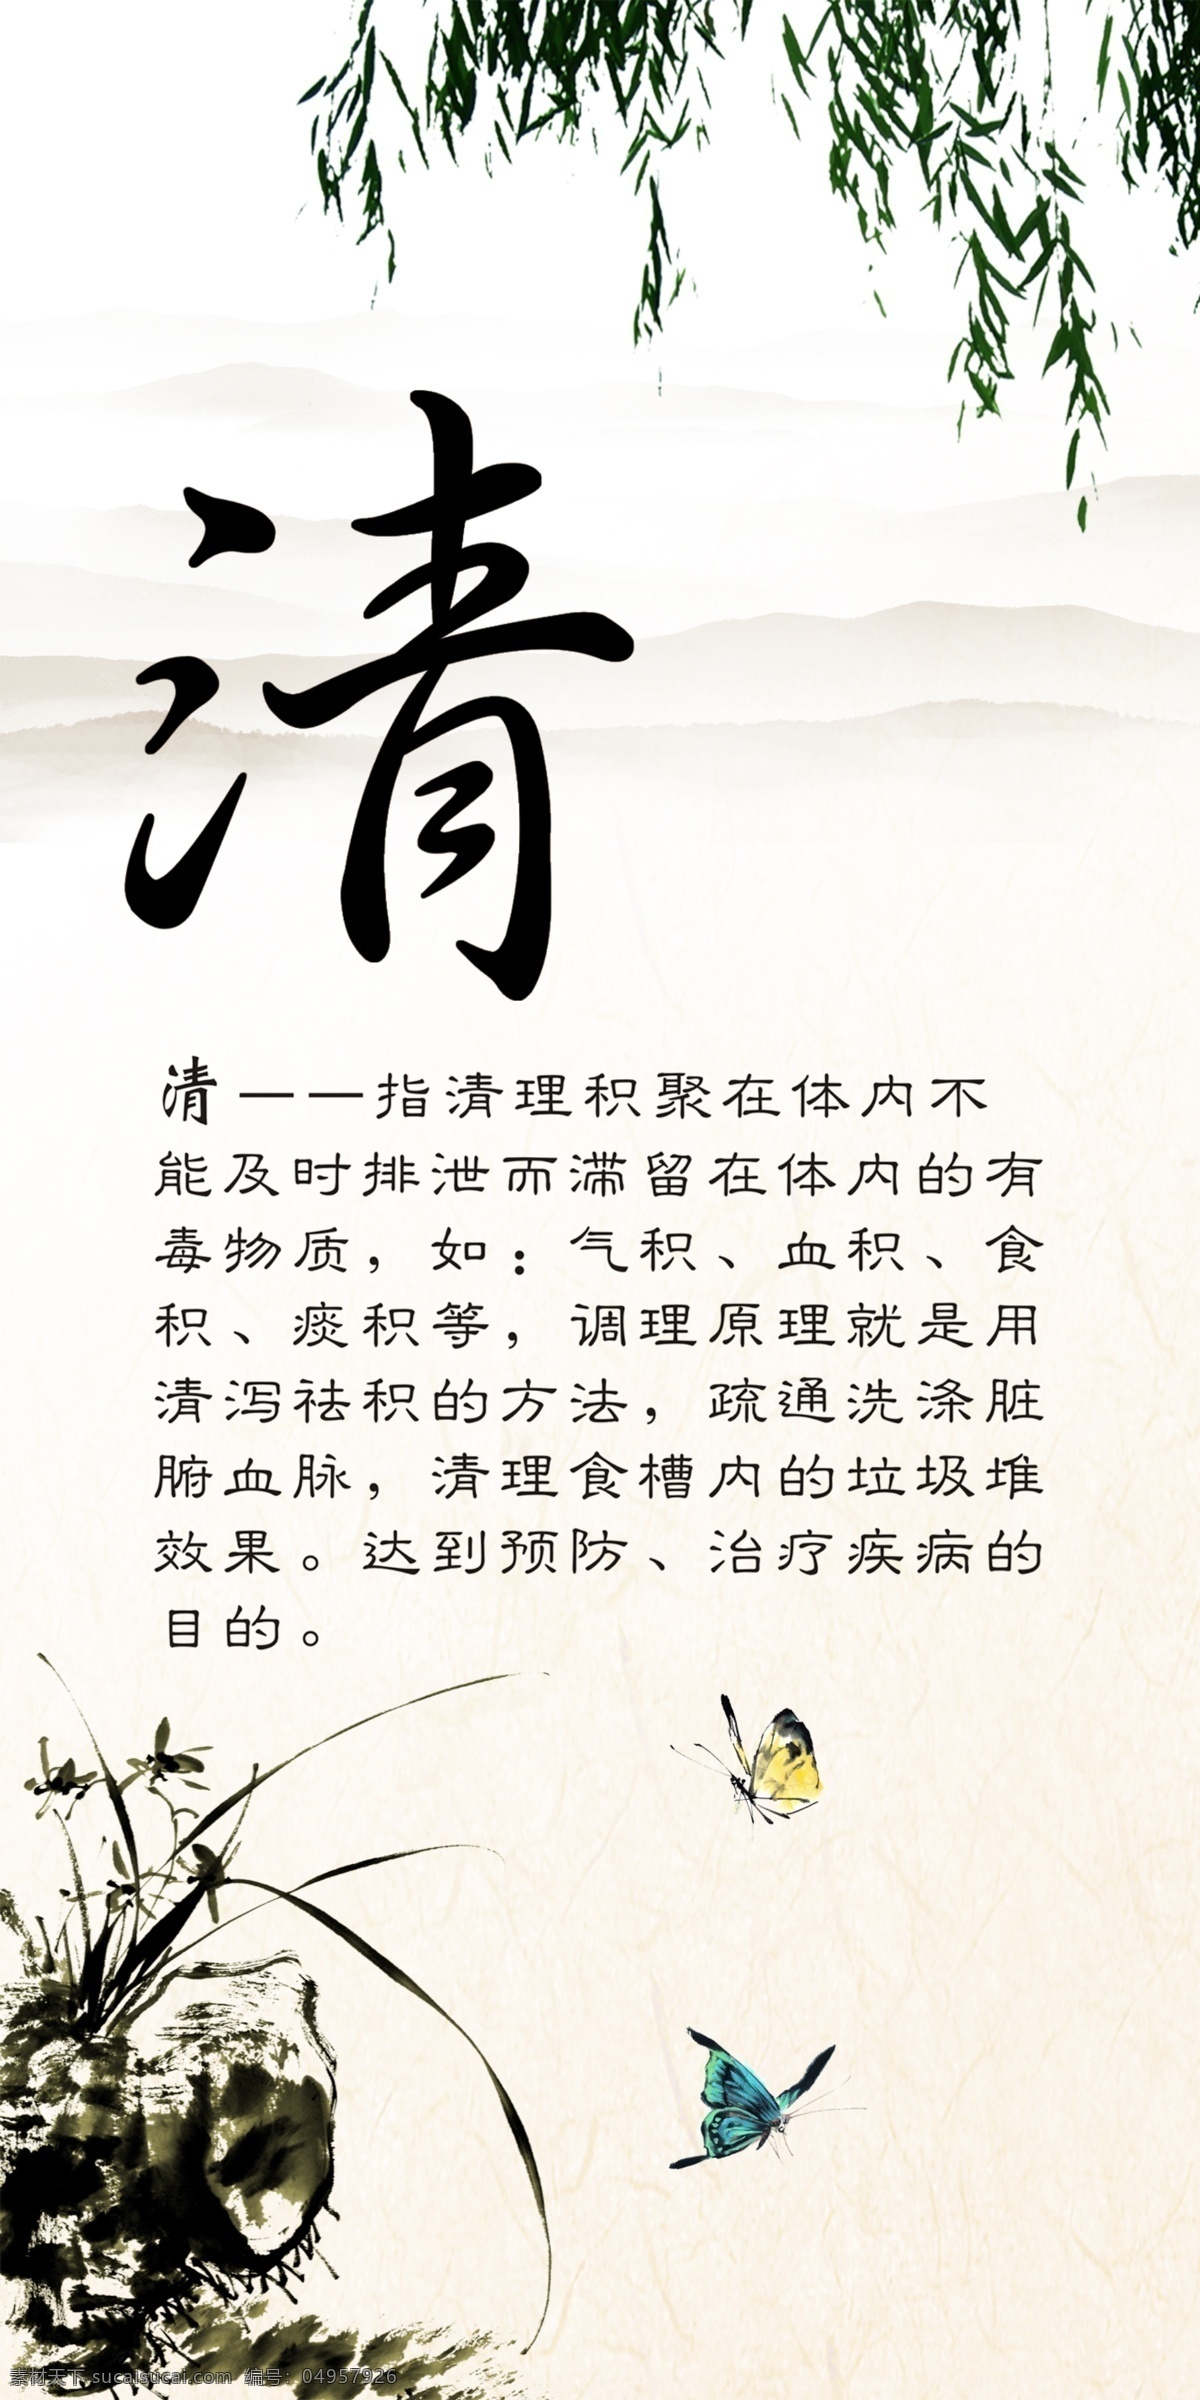 清
清——指清理积聚在体内不
能及时排泄而滞留在体内的有
毒物质，如：气积、血积、食
积、痰积等，调理原理就是用
清泻祛积的方法，疏通洗涤脏
腑血脉，清理食槽内的垃圾堆
效果。达到预防、治疗疾病的
目的。
素材天下 sucaisucai.com 编号：04957926